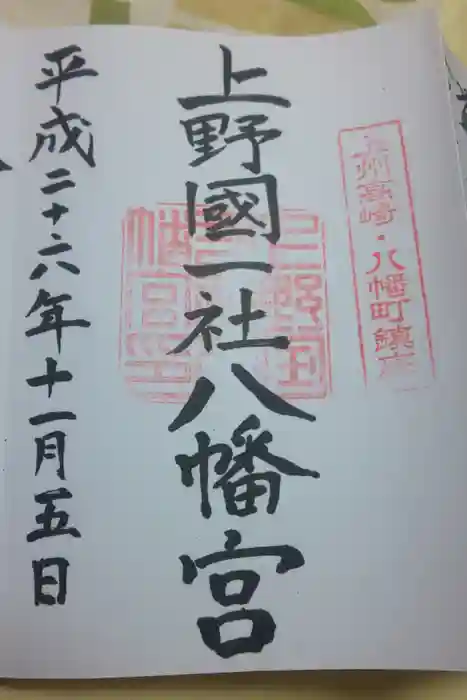 上州高崎・八幡町鎮座
上野國一社八幡宮
平成二十六年十一月五日